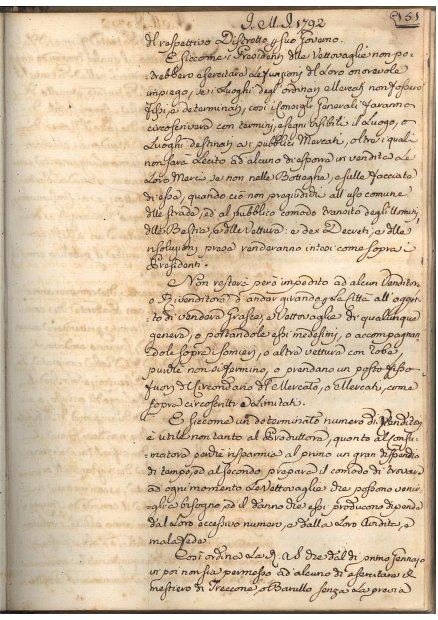 I. M. I. 1792
151
del respettivo Distretto, e suo Governo.
E siccome i Presidenti delle Vettovaglie non po-
trebbero esercitare le funzioni del loro onorevole
impiego, se i Luoghi degl'ordinari Mercati non fossero
fissi, e determinati, così i Consigli Generali faranno
circoscrivere con termini, e segni visibili il Luogo, o
Luoghi destinati ai pubblici Mercati, oltre i quali
non sarà lecito ad alcuno di esporre in vendita le
loro Merci se non nelle Botteghe, e sulle facciate
di esse, quando ciò non pregiudichi all'uso comune
delle strade, ed al pubblico comodo transito degli Uomini,
delle Bestie, e delle Vetture: e dei Decreti, e delle
risoluzioni prese renderanno intesi come sopra i
Presidenti.
Non resterà però impedito ad alcun Venditore,
o Rivenditore d'andar girando per le Città all'oggetto
di vendere Grasce, e Vettovaglie di qualunque
genere, o portandole essi medesimi, o accompagnan
dole sopra someri, o altra vettura con robe,
purchè non si fermino, o prendano un posto fisso
fuori di Circondario del Mercato, o Mercati, come
sopra circoscritti e limitati.
E siccome un determinato numero di Venditori
è utile non tanto al Produttore, quanto al Consu-
matore perchè risparmia al primo un gran dispendio
di tempo, ed al secondo prepara il comodo di trovare
ad ogni momento le Vettovaglie che possono venir-
gli a bisogno, ed il danno che essi producono dipende
dal loro eccessivo numero, e dalla loro avidità, e
mala fede
Così ordina la R. A. S. che dal dì primo Gennajo
in poi non sia permesso ad alcuno di esercitare il
mestiero di Treccone, o Barullo senza la previa